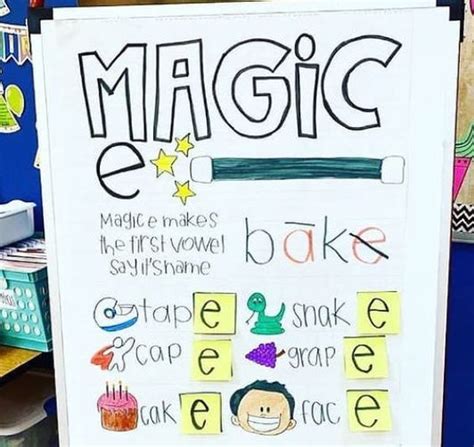 MAGiC
e
Magic e makes
the first vowel
say it's name
bāke
tape snake
cape grape
cake face